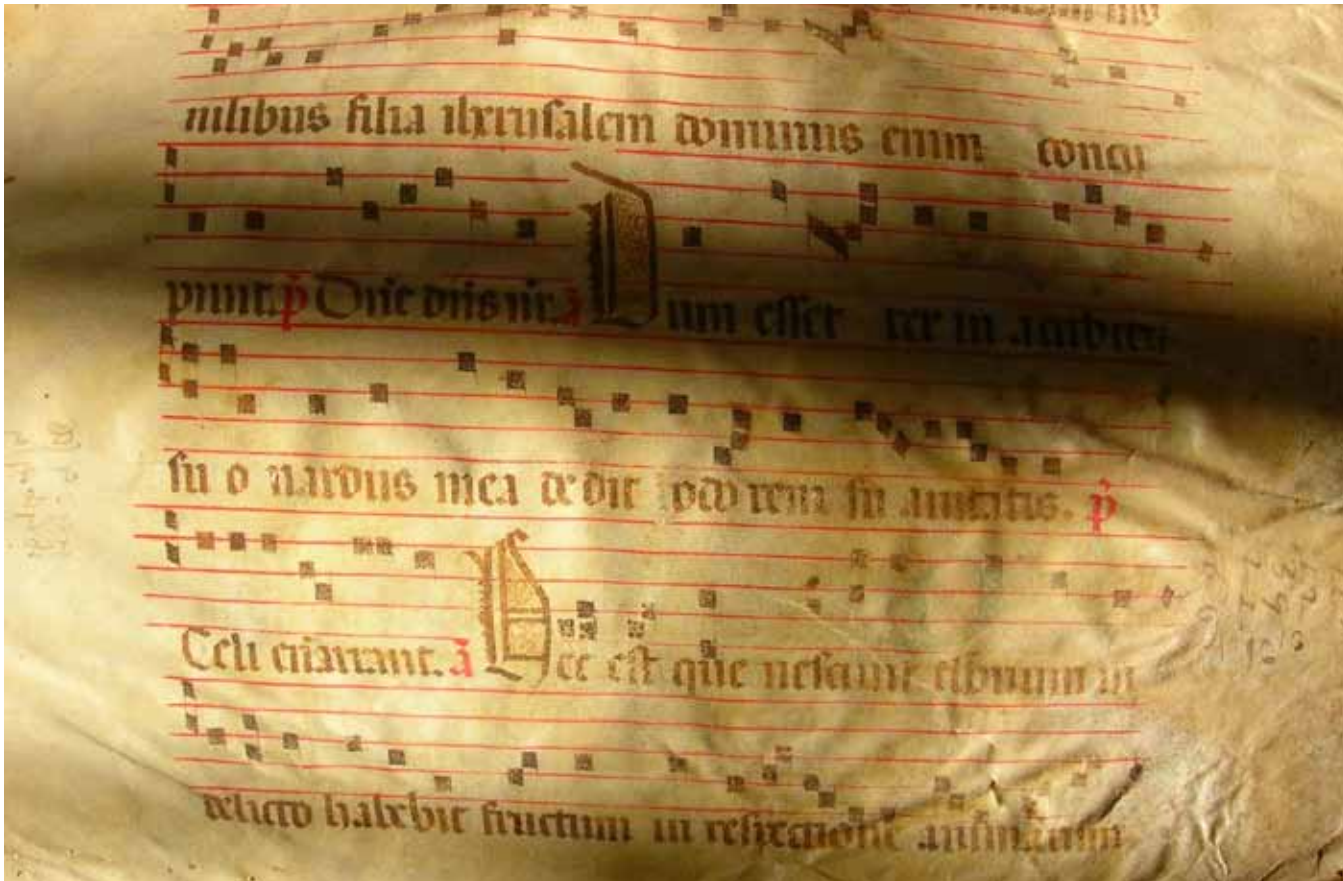 nilibus filia iherusalem dominus enim concu
piuit. p̄ Dn̄e dn̄s nr̄. ā Dum esset rex in accubitu
su o nardus mea dedit odo rem su auitatis. p̄
Celi enarrant. ā Hec est que nesciuit thorum in
delicto habebit fructum in respectione animarum